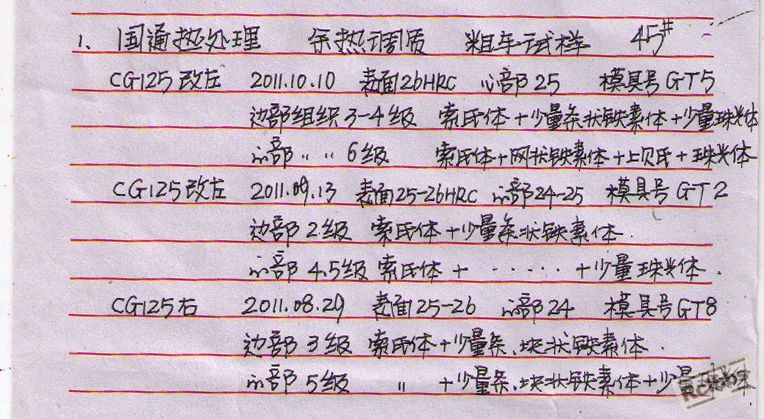 1、国通热处理 余热调质 粗车试样 45#
CG125改左 2011.10.10 表面26HRC 心部25 模具号GT5
边部组织3-4级 索氏体+少量条状铁素体+少量珠光体
心部 〃 〃 6级 索氏体+网状铁素体+上贝氏+珠光体
CG125改左 2011.09.13 表面25-26HRC 心部24-25 模具号GT2
边部2级 索氏体+少量条状铁素体.
心部4.5级 索氏体+ · · · · · +少量珠光体.
CG125右 2011.08.29 表面25-26 心部24 模具号GT8
边部3级 索氏体+少量条、块状铁素体.
心部5级 〃 +少量条、块状铁素体+少量